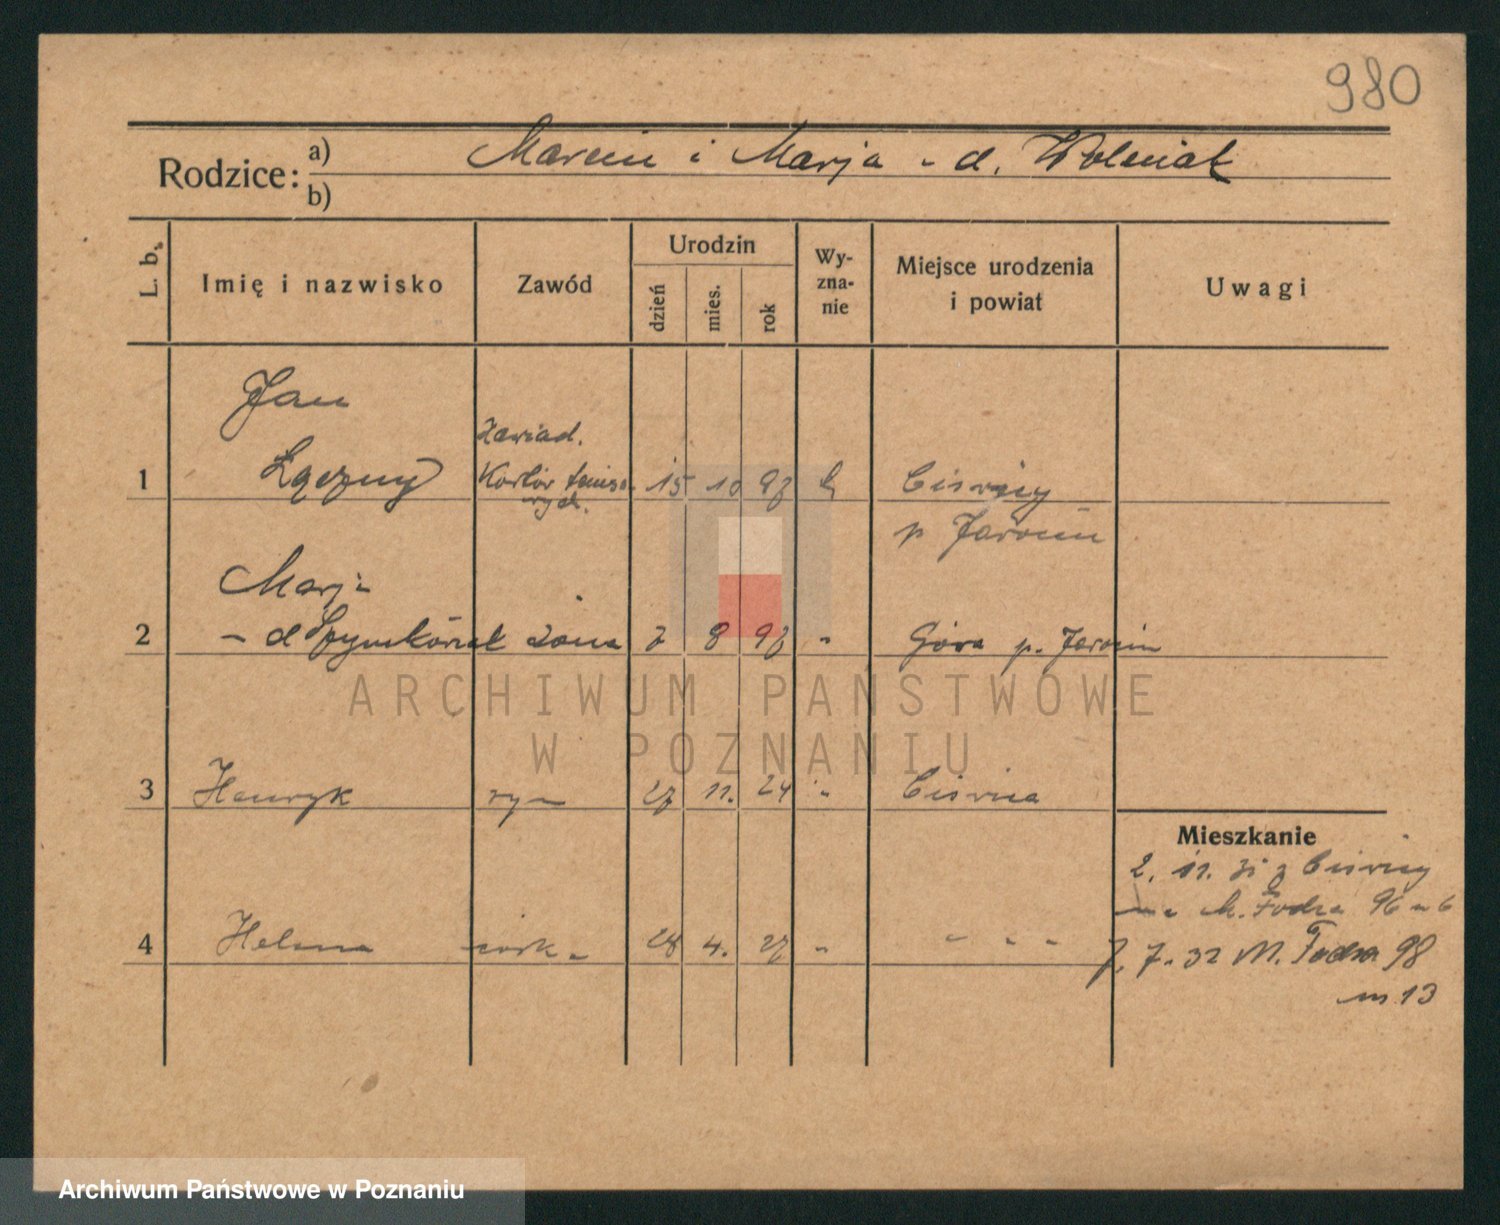 980
Rodzice:
a) Marcin i Marja - d. Wolniak
b)
L. b.
Imię i nazwisko
Zawód
Urodzin
dzień
mies.
rok
Wy-
zna-
nie
Miejsce urodzenia
i powiat
Uwagi
Jan
Zawiad.
1 Łączny Kortów teniso- 15 10 97 k Cieświcy
wych.
p Jarocin
Marja
2 - d Szymkowiak żona 7 8 97 " Góra p. Jarocin
ARCHIWUM PAŃSTWOWE
W POZNANIU
3 Henryk syn 27 11. 24 "
Mieszkanie
2. 11. 31 z
M. Focha 96 m 6
4 Helena córka 28 4. 27 " " " "
7. 7. 32 M. Focha 98
m 13
Archiwum Państwowe w Poznaniu